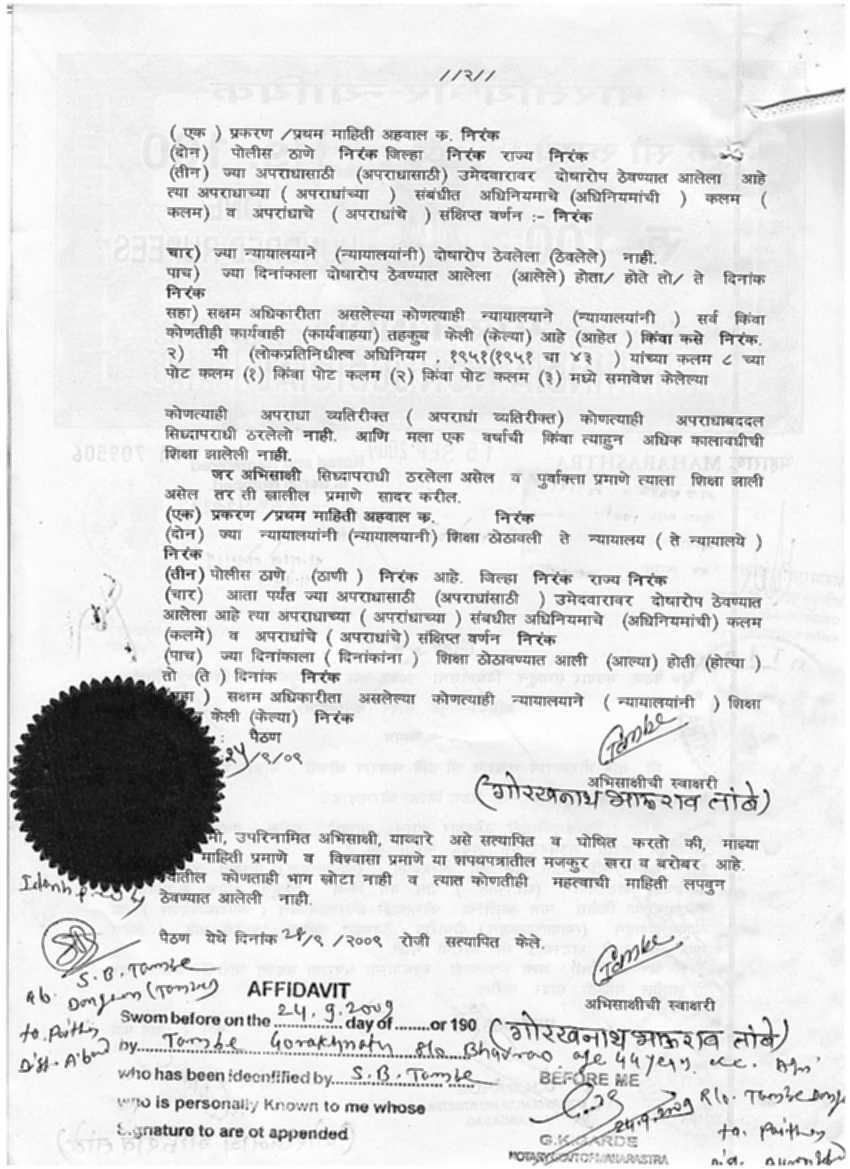 //२//
( एक ) प्रकरण /प्रथम माहिती अहवाल क. निरंक
(दोन) पोलीस ठाणे निरंक जिल्हा निरंक राज्य निरंक
(तीन) ज्या अपराधासाठी (अपराधासाठी) उमेदवारावर दोषारोप ठेवण्यात आलेला आहे
त्या अपराधाच्या ( अपराधांच्या ) संबंधीत अधिनियमाचे (अधिनियमांची ) कलम (
कलम) व अपराधाचे ( अपराधांचे ) संक्षिप्त वर्णन :- निरंक
चार) ज्या न्यायालयाने (न्यायालयांनी) दोषारोप ठेवलेला (ठेवलेले) नाही.
पाच) ज्या दिनांकाला दोषारोप ठेवण्यात आलेला (आलेले) होता/ होते तो/ ते दिनांक
निरंक
सहा) सक्षम अधिकारीता असलेल्या कोणत्याही न्यायालयाने (न्यायालयांनी ) सर्व किंवा
कोणतीही कार्यवाही (कार्यवाहया) तहकुब केली (केल्या) आहे (आहेत ) किंवा कसे निरंक.
२) मी (लोकप्रतिनिधीत्व अधिनियम , १९५१(१९५१ चा ४३ ) यांच्या कलम ८ च्या
पोट कलम (१) किंवा पोट कलम (२) किंवा पोट कलम (३) मध्ये समावेश केलेल्या
कोणत्याही अपराधा व्यतिरीक्त ( अपराधां व्यतिरीक्त) कोणत्याही अपराधाबददल
सिध्दापराधी ठरलेलो नाही. आणि मला एक वर्षाची किंवा त्याहुन अधिक कालावधीची
शिक्षा झालेली नाही.
जर अभिसाक्षी सिध्दापराधी ठरलेला असेल व पुर्वाक्ता प्रमाणे त्याला शिक्षा झाली
असेल तर ती खालील प्रमाणे सादर करील.
(एक) प्रकरण /प्रथम माहिती अहवाल क. निरंक
(दोन) ज्या न्यायालयांनी (न्यायालयानी) शिक्षा ठोठावली ते न्यायालय ( ते न्यायालये )
निरंक
(तीन) पोलीस ठाणे (ठाणी ) निरंक आहे. जिल्हा निरंक राज्य निरंक
(चार) आता पर्यंत ज्या अपराधासाठी (अपराधांसाठी ) उमेदवारावर दोषारोप ठेवण्यात
आलेला आहे त्या अपराधाच्या ( अपरांधाच्या ) संबधीत अधिनियमाचे (अधिनियमांची) कलम
(कलमे) व अपराधांचे ( अपराधांचे) संक्षिप्त वर्णन निरंक
(पाच) ज्या दिनांकाला ( दिनांकांना ) शिक्षा ठोठावण्यात आली (आल्या) होती (होत्या )
तो (ते ) दिनांक निरंक
) सक्षम अधिकारीता असलेल्या कोणत्याही न्यायालयाने ( न्यायालयांनी ) शिक्षा
केली (केल्या) निरंक
: पैठण
/९/०९
Tambe
अभिसाक्षीची स्वाक्षरी
(गोरखनाथ भाऊराव तांबे)
मी, उपरिनामित अभिसाक्षी, याव्दारे असे सत्यापित व घोषित करतो की, माझ्या
माहिती प्रमाणे व विश्वासा प्रमाणे या शपथपत्रातील मजकुर खरा व बरोबर आहे.
कोणताही भाग खोटा नाही व त्यात कोणतीही महत्वाची माहिती लपवुन
ठेवण्यात आलेली नाही.
पैठण येथे दिनांक /९ /२००९ रोजी सत्यापित केले.
Tambe
अभिसाक्षीची स्वाक्षरी
(गोरखनाथ भाऊराव तांबे)
S.B. Tambe
AFFIDAVIT
Sworn before on the 24.9.2009 day of ........or 190
by Tambe Gorakhnath s/o Bhaurao age 44 years
who has been ideenfified by S.B. Tambe
who is personally Known to me whose
Signature to are ot appended
BEFORE ME
24.9.2009
R/o. Tambe
G.K.GARDE